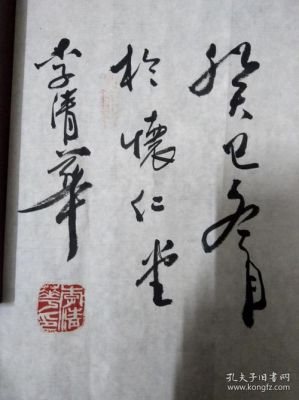 癸巳冬月
於懷仁堂
李清華
李清華印
孔夫子旧书网
www.kongfz.com